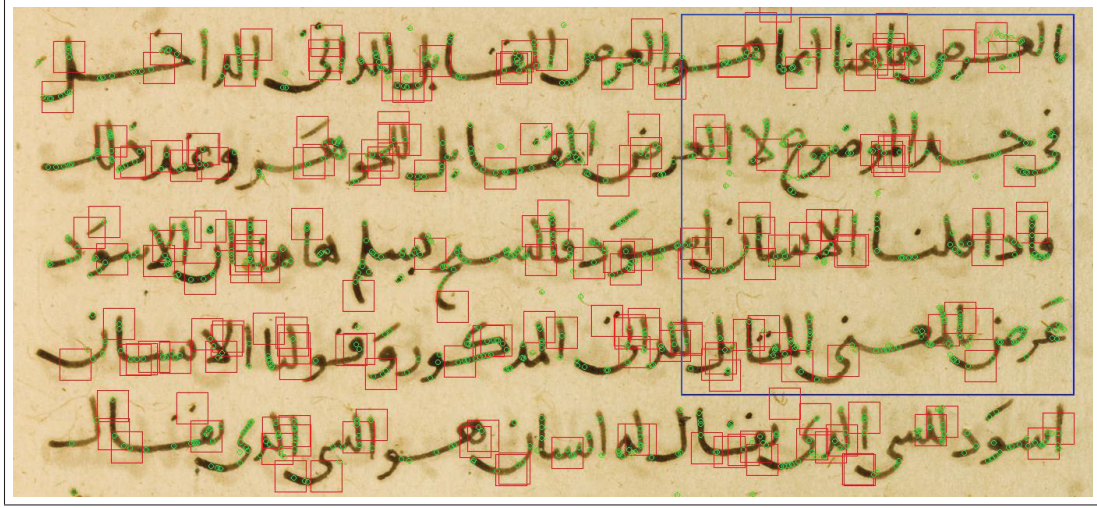 العرض هاهنا انما هو العرض المقابل للذاتى الداخل
فى حد الموضوع لا العرض المقابل للجوهر وعند ذلك
فاذا قلنا الانسان اسود فالاسود هاهنا
عرض للمعنى المقابل للذاتى المذكور وقولنا الانسان
اسود للشى الذى يقال له انسان هو الشى الذى يقال